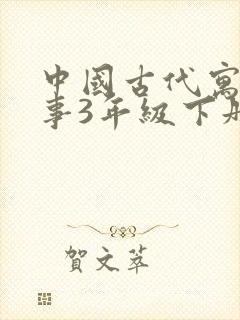 中國古代寓
事3年級下
賀文萃